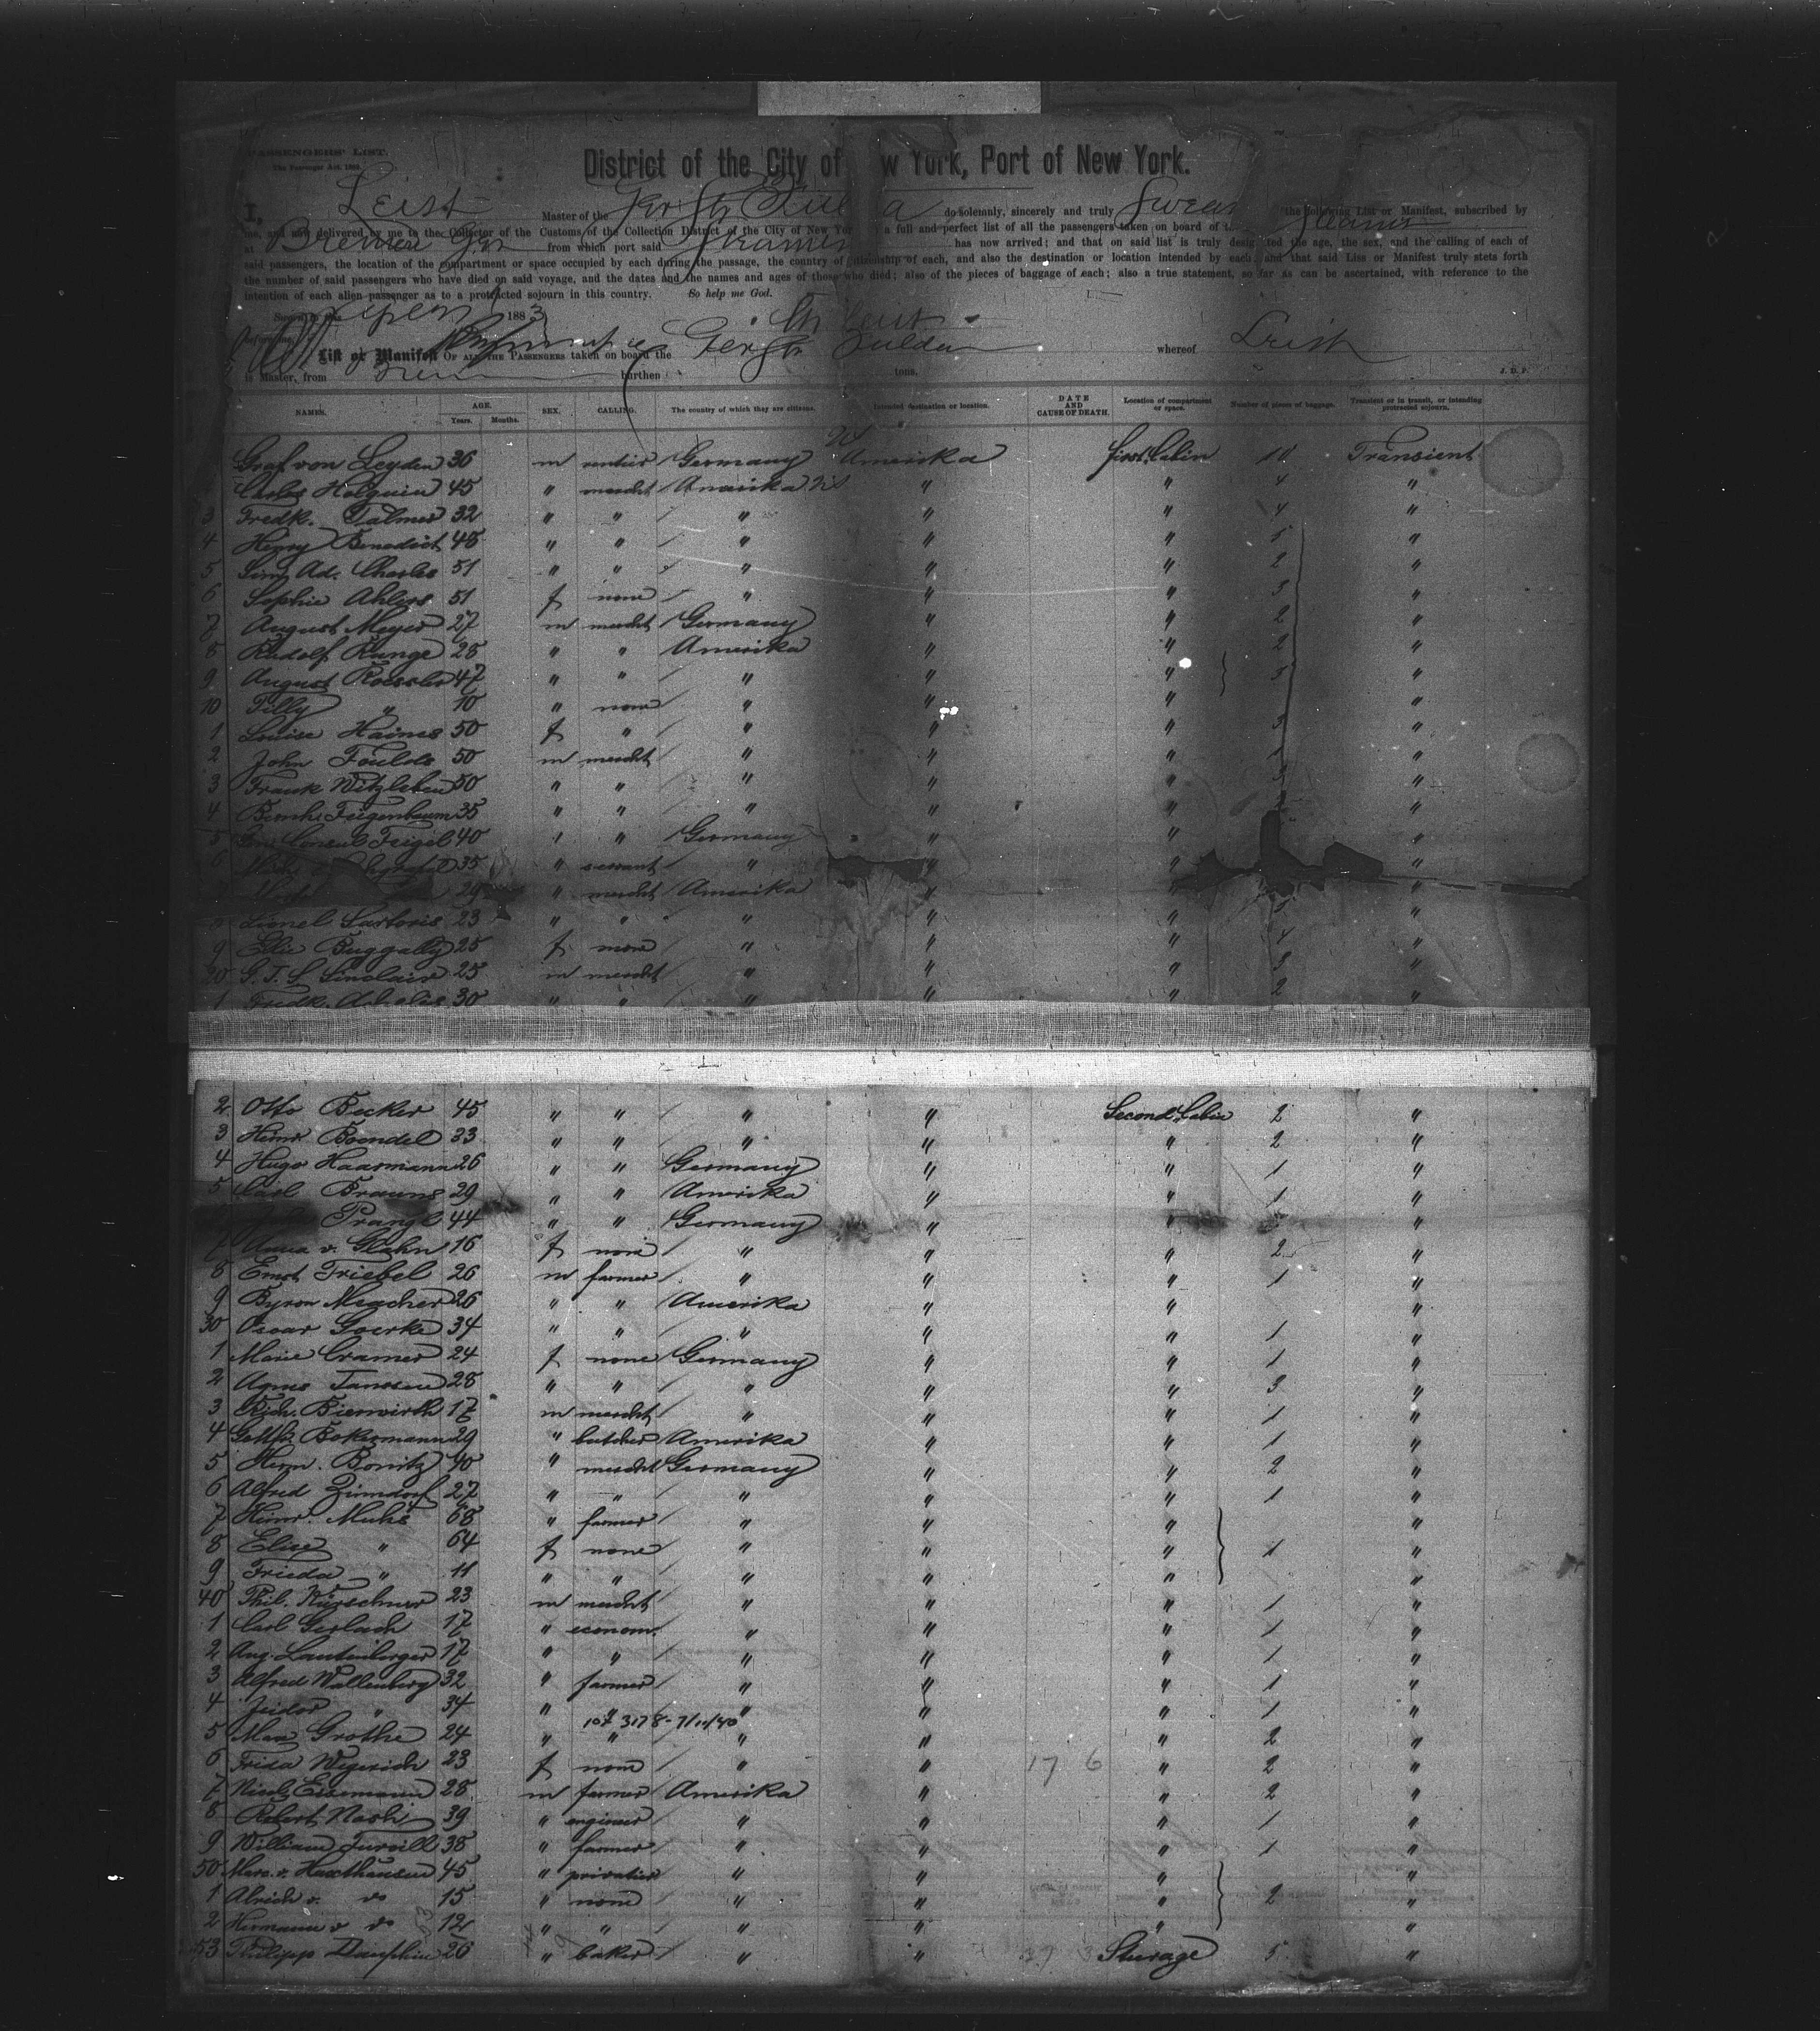 PASSENGERS' LIST.
The Passenger Act, 1882.
District of the City of New York, Port of New York.
I, Leist Master of the do solemnly, sincerely and truly Swear the following List or Manifest, subscribed by
me, and now delivered by me to the Collector of the Customs of the Collection District of the City of New York a full and perfect list of all the passengers taken on board of the
at Bremen from which port said has now arrived; and that on said list is truly designated the age, the sex, and the calling of each of
said passengers, the location of the compartment or space occupied by each during the passage, the country of citizenship of each, and also the destination or location intended by each; and that said Liss or Manifest truly stets forth
the number of said passengers who have died on said voyage, and the dates and the names and ages of those who died; also of the pieces of baggage of each; also a true statement, so far as can be ascertained, with reference to the
intention of each alien passenger as to a protracted sojourn in this country. So help me God.
Sworn to this 1883
before me
List or Manifest OF ALL THE PASSENGERS taken on board the Fulda whereof Leist
is Master, from burthen tons. J. D. P.
NAMES. AGE. Years. Months. SEX. CALLING. The country of which they are citizens. Intended destination or location. DATE AND CAUSE OF DEATH. Location of compartment or space. Number of pieces of baggage. Transient or in transit, or intending protracted sojourn.
Graf von Leyden 36 m rentier Germany Amerika first Cabin 10 Transient
Carlos Holguin 45 " mercht Amerika " " 4 "
3 Fredk. Palmer 32 " " " " " 4 "
4 Henry Benedict 48 " " " " " 5 "
5 Ad. Charles 51 " " " " " 2 "
6 Sophie Ahlers 51 f none " " " 3 "
7 August Meyer 27 m mercht Germany " " 2 "
8 Rudolf Runge 28 " " Amerika " " 2 "
9 August Roessler 47 " " " " " 3 "
10 Tilly " 10 " none " " " "
1 Louise Haines 50 f " " " " 3 "
2 John Foulds 50 m mercht " " " 1 "
3 Frank Witzleben 50 " " " " " "
4 Bernh. Feigenbaum 35 " " " " " "
5 Gen. Consul Feigel 40 " " Germany " " "
6 35 " servant " " " "
29 " mercht Amerika " " "
Lionel Sartoris 23 " " " " " 5 "
9 Elie Buggally 25 f none " " " 4 "
20 G. T. S. Sinclair 25 m mercht " " " 3 "
1 Fredk. Achelis 30 " " " " " 2 "
2 Otto Becker 45 " " " " Second Cabin 2 "
3 Heinr. Boendel 33 " " " " " 2 "
4 Hugo Haasmann 26 " " Germany " " 1 "
5 Carl Brauns 29 " " Amerika " " 1 "
Prangl 44 " " Germany " " "
7 Anna v. Glahn 16 f none " " " 2 "
8 Ernst Friebel 26 m farmer " " " 1 "
9 Byron Meacher 26 " " Amerika " " "
30 Oscar Goerke 34 " " " " " 1 "
1 Marie Cramer 24 f none Germany " " 1 "
2 Agnes Janssen 28 " " " " " 3 "
3 Rich. Bierwirth 17 m mercht " " " 1 "
4 Gotth. Bokermann 29 " butcher Amerika " " 1 "
5 Herm. Bonitz 40 " mercht Germany " " 2 "
6 Alfred Zinndorf 27 " " " " " 1 "
7 Heinr. Muhs 68 " farmer " " " "
8 Elise " 64 f none " " " 1 "
9 Frieda " 11 " " " " " "
40 Phil. Kürschner 23 m mercht " " " 1 "
1 Carl Gerlach 17 " econom. " " " 1 "
2 Aug. Lautenberger 17 " " " " " 1 "
3 Alfred Wallenberg 32 " farmer " " " 1 "
4 Isidor " 34 " " " " " 1 "
107 3178 - 7/11/40
5 Max Grothe 24 " " " " " 2 "
6 Frida Wegerich 23 f none " " 17 6 " 2 "
7 Nicol. Eisemann 28 m farmer Amerika " " 2 "
8 Robert Nash 39 " engineer " " " 1 "
9 William Turvill 38 " farmer " " " 1 "
50 Marc. v. Haxthausen 45 " privatier " " " "
1 Alrich v. do 15 " none " " " 2 "
2 Hermann v do 12 " " " " " "
53 Philipp Dauphin 26 " baker " " Sturage 5 "